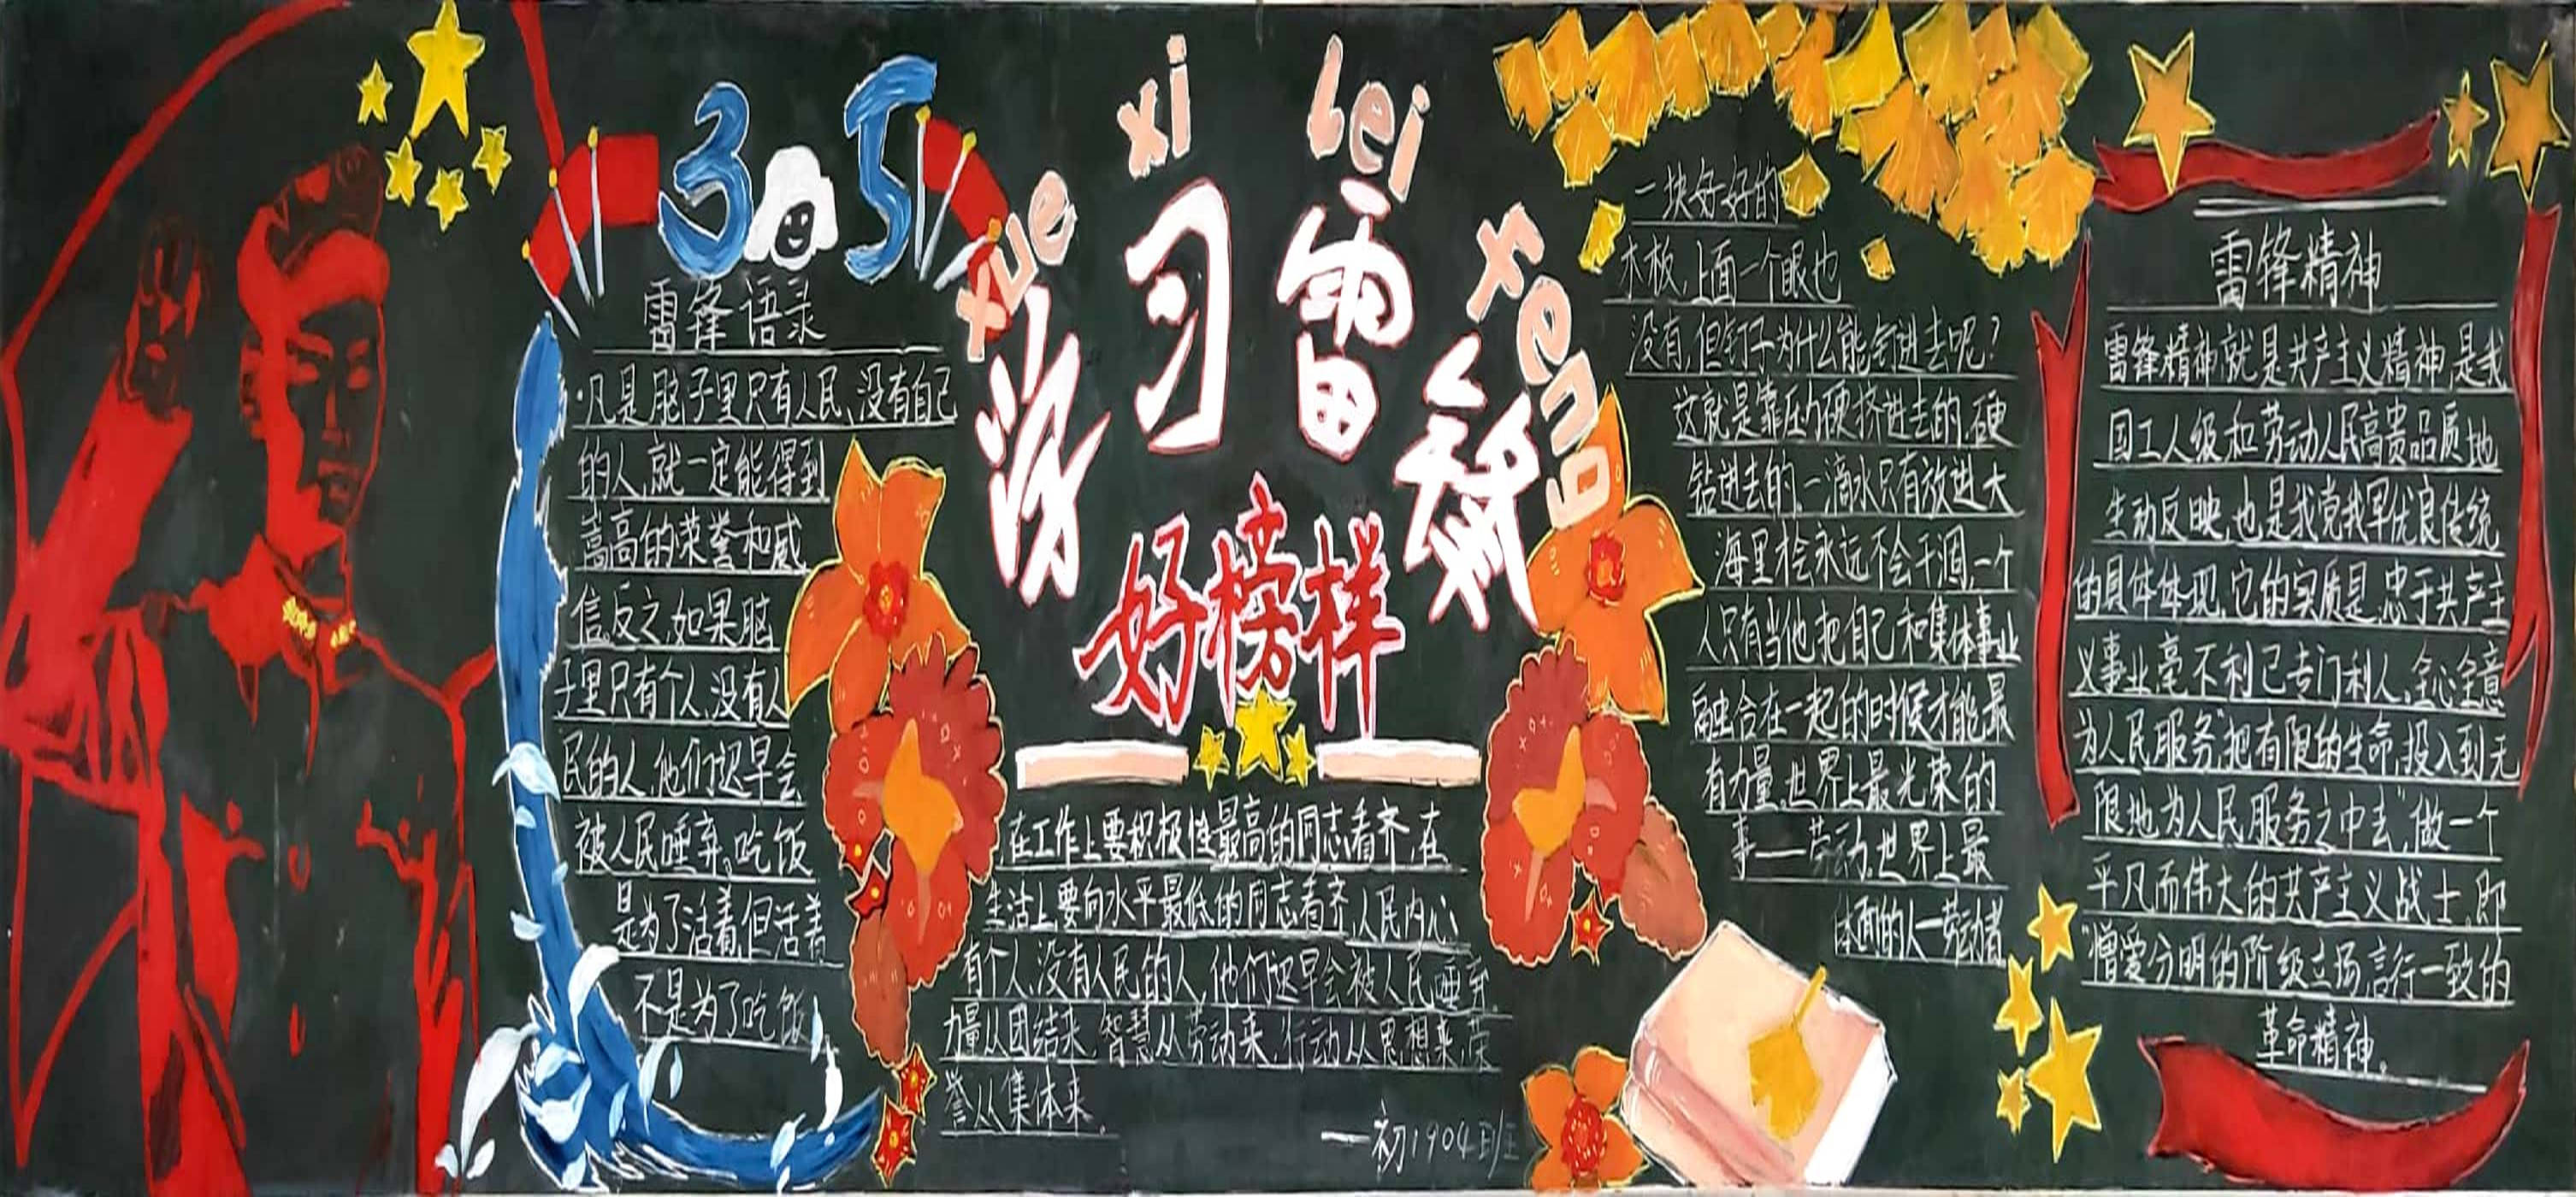 3 5
xue xi Lei feng
学习雷锋
好榜样
雷锋语录
·凡是脑子里只有人民、没有自己
的人,就一定能得到
崇高的荣誉和威
信,反之,如果脑
子里只有个人,没有人
民的人,他们迟早会
被人民唾弃。吃饭
是为了活着,但活着
不是为了吃饭!
在工作上要积极性最高的同志看齐,在
生活上要向水平最低的同志看齐,人民内心
有个人,没有人民的人,他们迟早会被人民唾弃.
力量从团结来,智慧从劳动来,行动从思想来,荣
誉从集体来.
—初1904班
一块好好的
木板,上面一个眼也
没有,但钉子为什么能钉进去呢?
这就是靠压力硬挤进去的,硬
钻进去的,一滴水只有放进大
海里才会永远不会干涸,一个
人只有当他把自己和集体事业
融合在一起的时候才能最
有力量,世界上最光荣的
事——劳动,世界上最
体面的人—劳动者
雷锋精神
雷锋精神,就是共产主义精神,是我
国工人级和劳动人民高贵品质地
生动反映,也是我党我军优良传统
的具体体现,它的实质是,忠于共产主
义事业,毫不利己专门利人,全心全意
为人民服务,"把有限的生命,投入到无
限地为人民服务之中去",做一个
平凡而伟大的共产主义战士,即
"憎爱分明的阶级立场,言行一致的
革命精神。